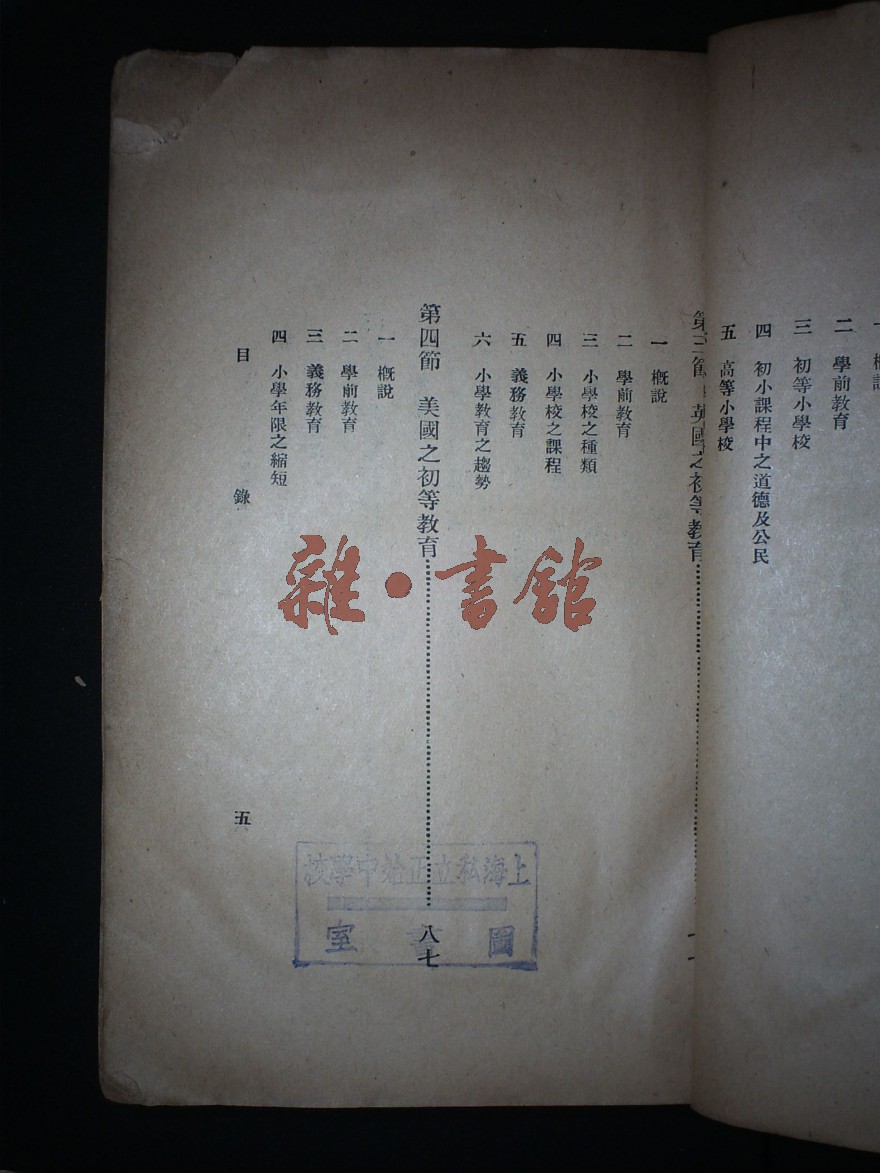 二 學前教育
三 初等小學校
四 初小課程中之道德及公民
五 高等小學校
英國之初等教育
一 概說
二 學前教育
三 小學校之種類
四 小學校之課程
五 義務教育
六 小學教育之趨勢
第四節 美國之初等教育 八七
一 概說
二 學前教育
三 義務教育
四 小學年限之縮短
目 錄 五
雜·書館
上海私立正始中學校
圖書室